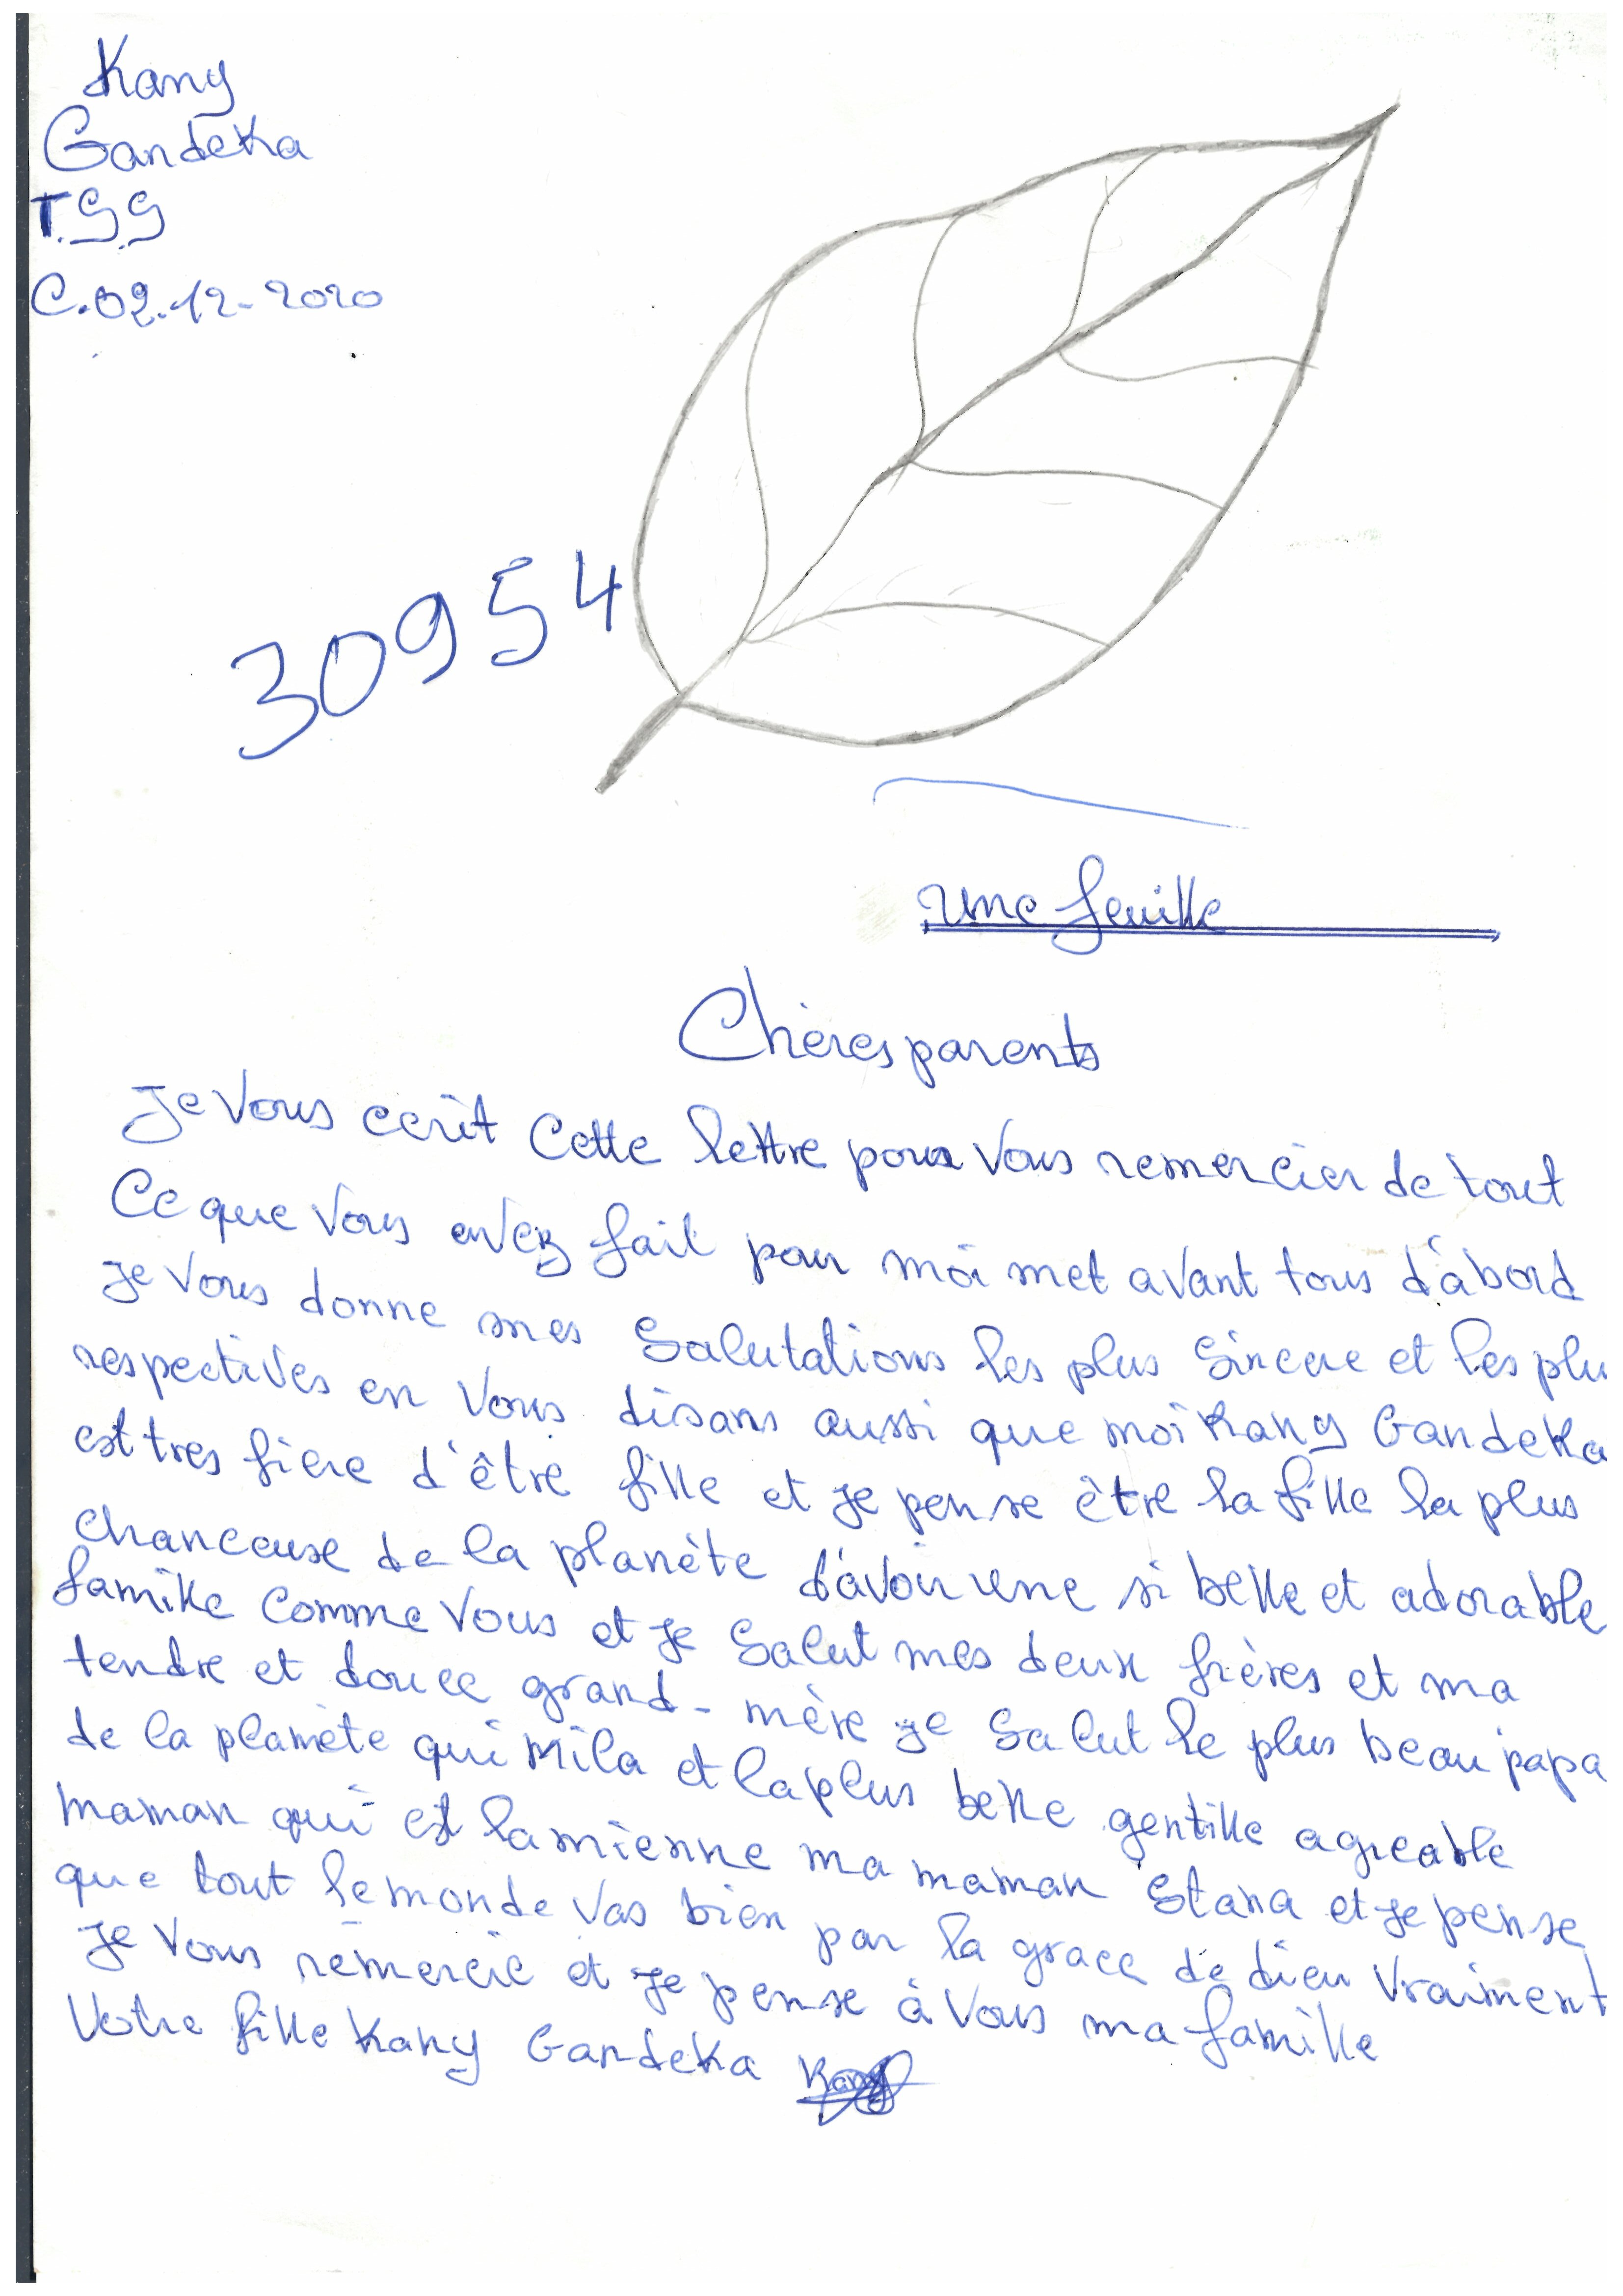 Kany
Gandeka
T.S.S
C.02.12-2020
30954
Une feuille
Chères parents
Je vous ecrit cette lettre pour vous remercier de tout
Ce que vous avez fait pour moi met avant tous d'abord
je vous donne mes Salutations les plus Sincere et les plu
respectives en vous disans aussi que moi Kany Gandeka
est tres fiere d'être fille et je pense être la fille la plus
chanceuse de la planète d'avoir une si belle et adorable
famille comme vous et je Salut mes deux frères et ma
tendre et douce grand-mère je Salut le plus beau papa
de la planète qui Mila et la plus belle gentille agreable
maman qui est la mienne ma maman Stana et je pense
que tout le monde vas bien par la grace de dieu vraiment
je vous remercie et je pense à vous ma famille
Votre fille Kany Gandeka Kany